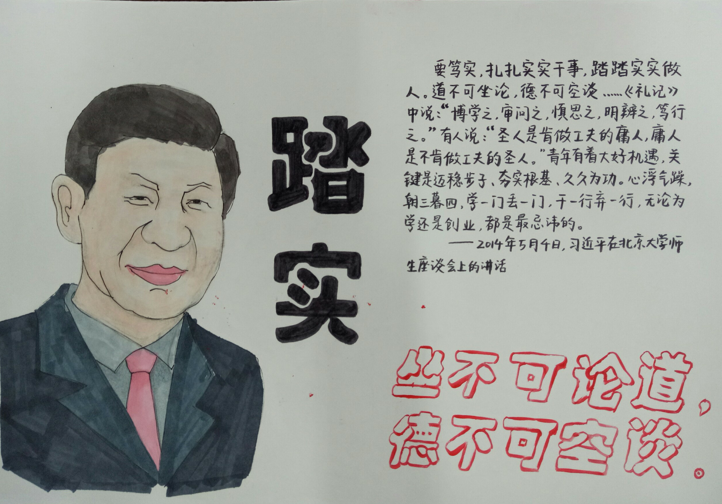 踏实
要笃实,扎扎实实干事,踏踏实实做
人。道不可坐论,德不可空谈……《礼记》
中说:“博学之,审问之,慎思之,明辨之,笃行
之。”有人说:“圣人是肯做工夫的庸人,庸人
是不肯做工夫的圣人。”青年有着大好机遇,关
键是迈稳步子、夯实根基、久久为功。心浮气躁,
朝三暮四,学一门丢一门,干一行弃一行,无论为
学还是创业,都是最忌讳的。
——2014年5月4日,习近平在北京大学师
生座谈会上的讲话
坐不可论道,
德不可空谈。